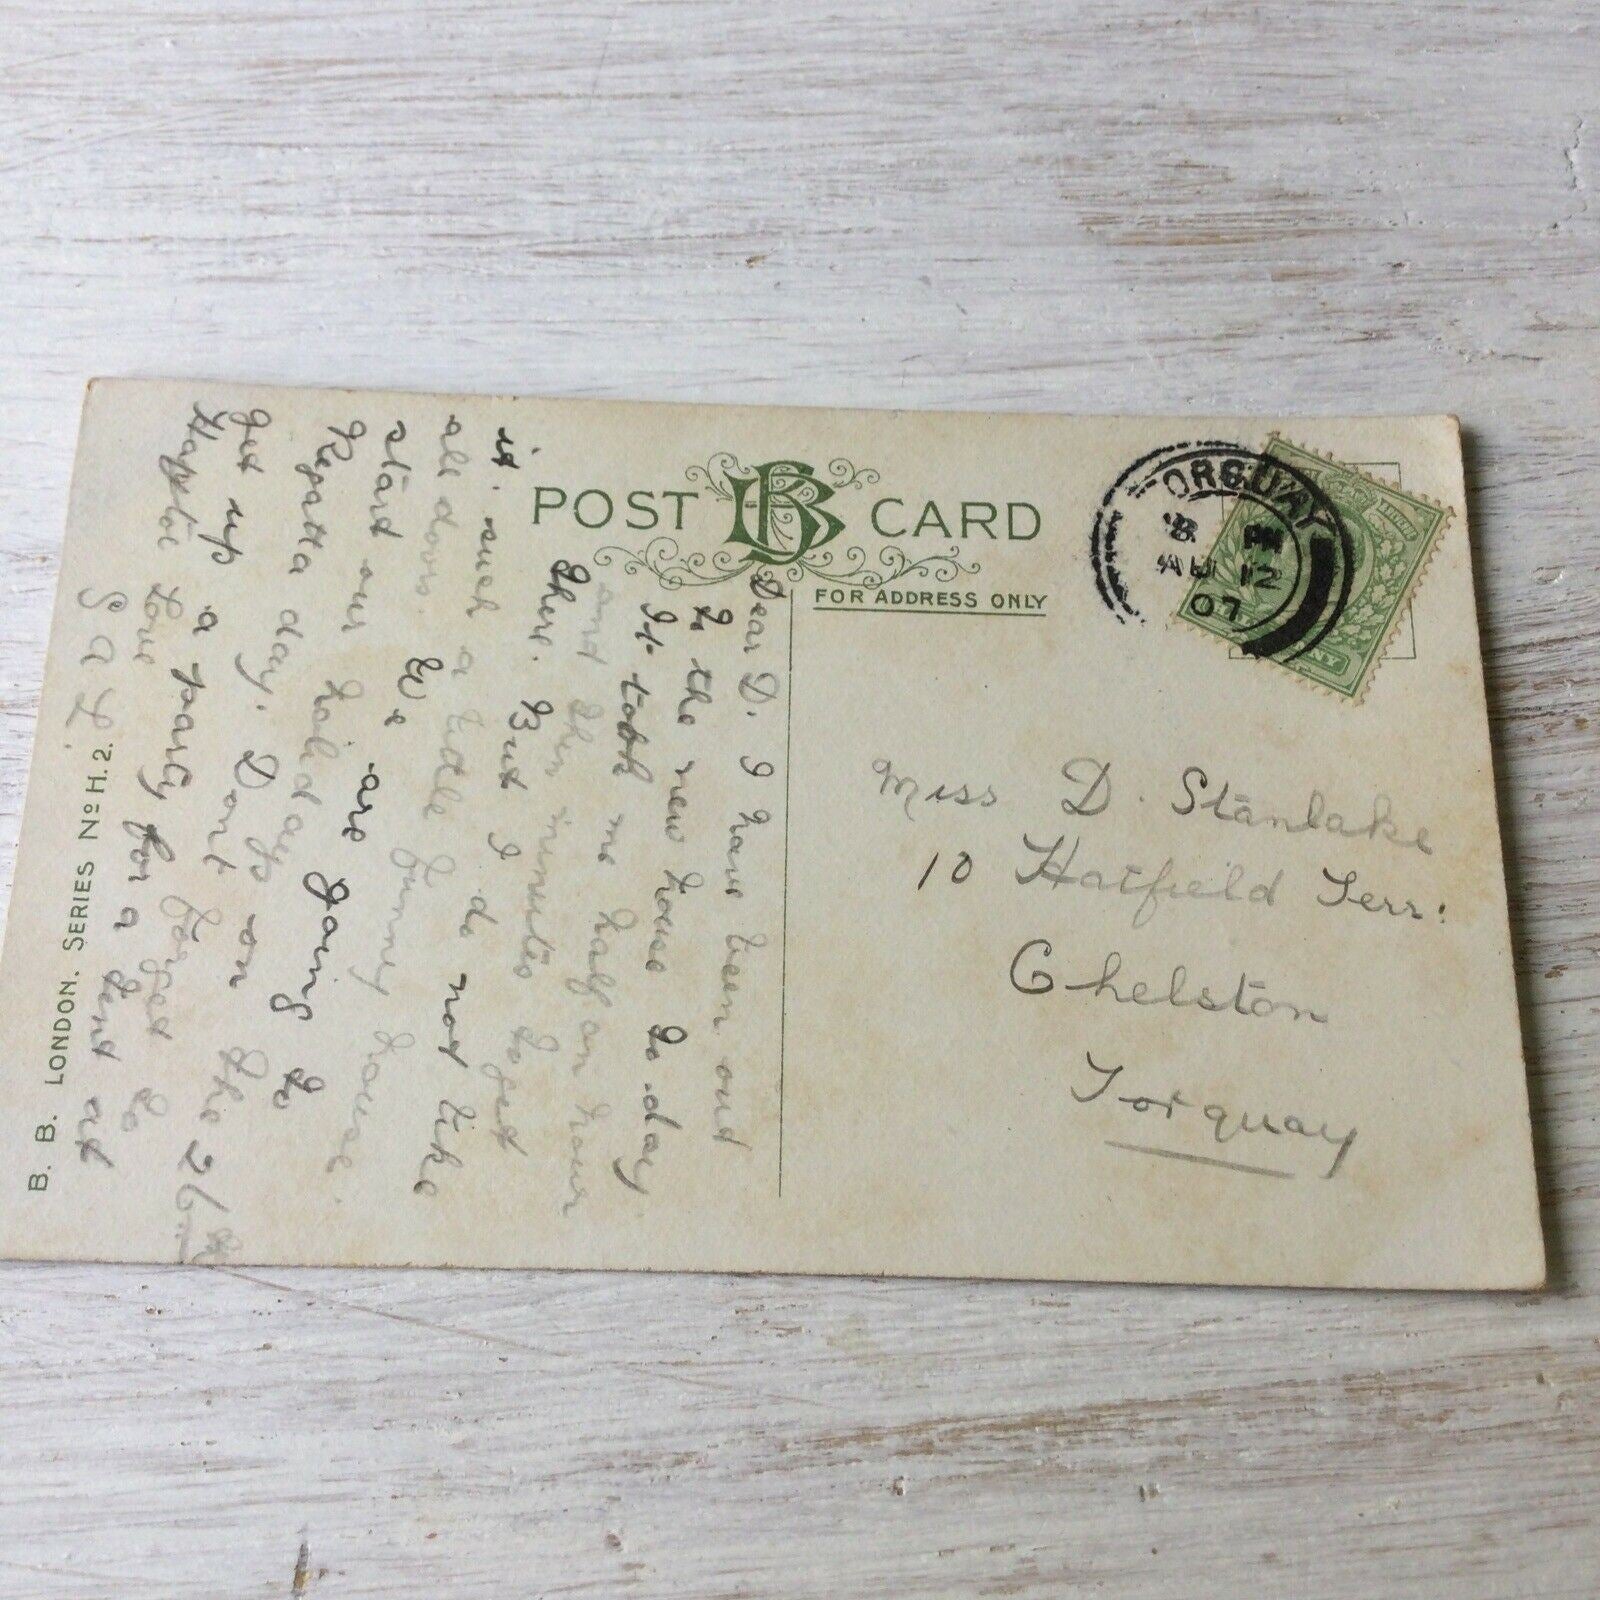 POST CARD
FOR ADDRESS ONLY
TORQUAY
PM
AU 12
07
Dear D. I have been out
to the new house to day
It took me half an hour
and thir minutes to get
there. But I do not like
it. such a little funney house.
all doors. We are going to
start our holidays on the 26th
Regatta day. Dont forget to
get up a party for a tent at
Haytor Love
S a L.
Miss D. Stanlake
10 Hatfield Terr:
Chelston
Torquay
B. B. LONDON. SERIES No H. 2.